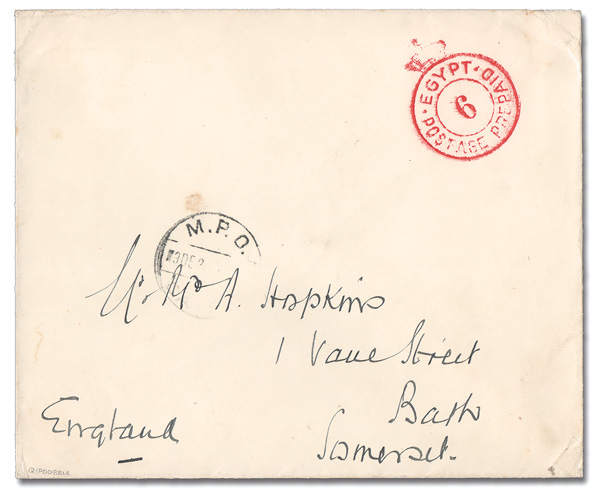 EGYPT
POSTAGE PREPAID
6
M.P.O.
A. Hopkins
1 Vane Street
Bath
Somerset.
England